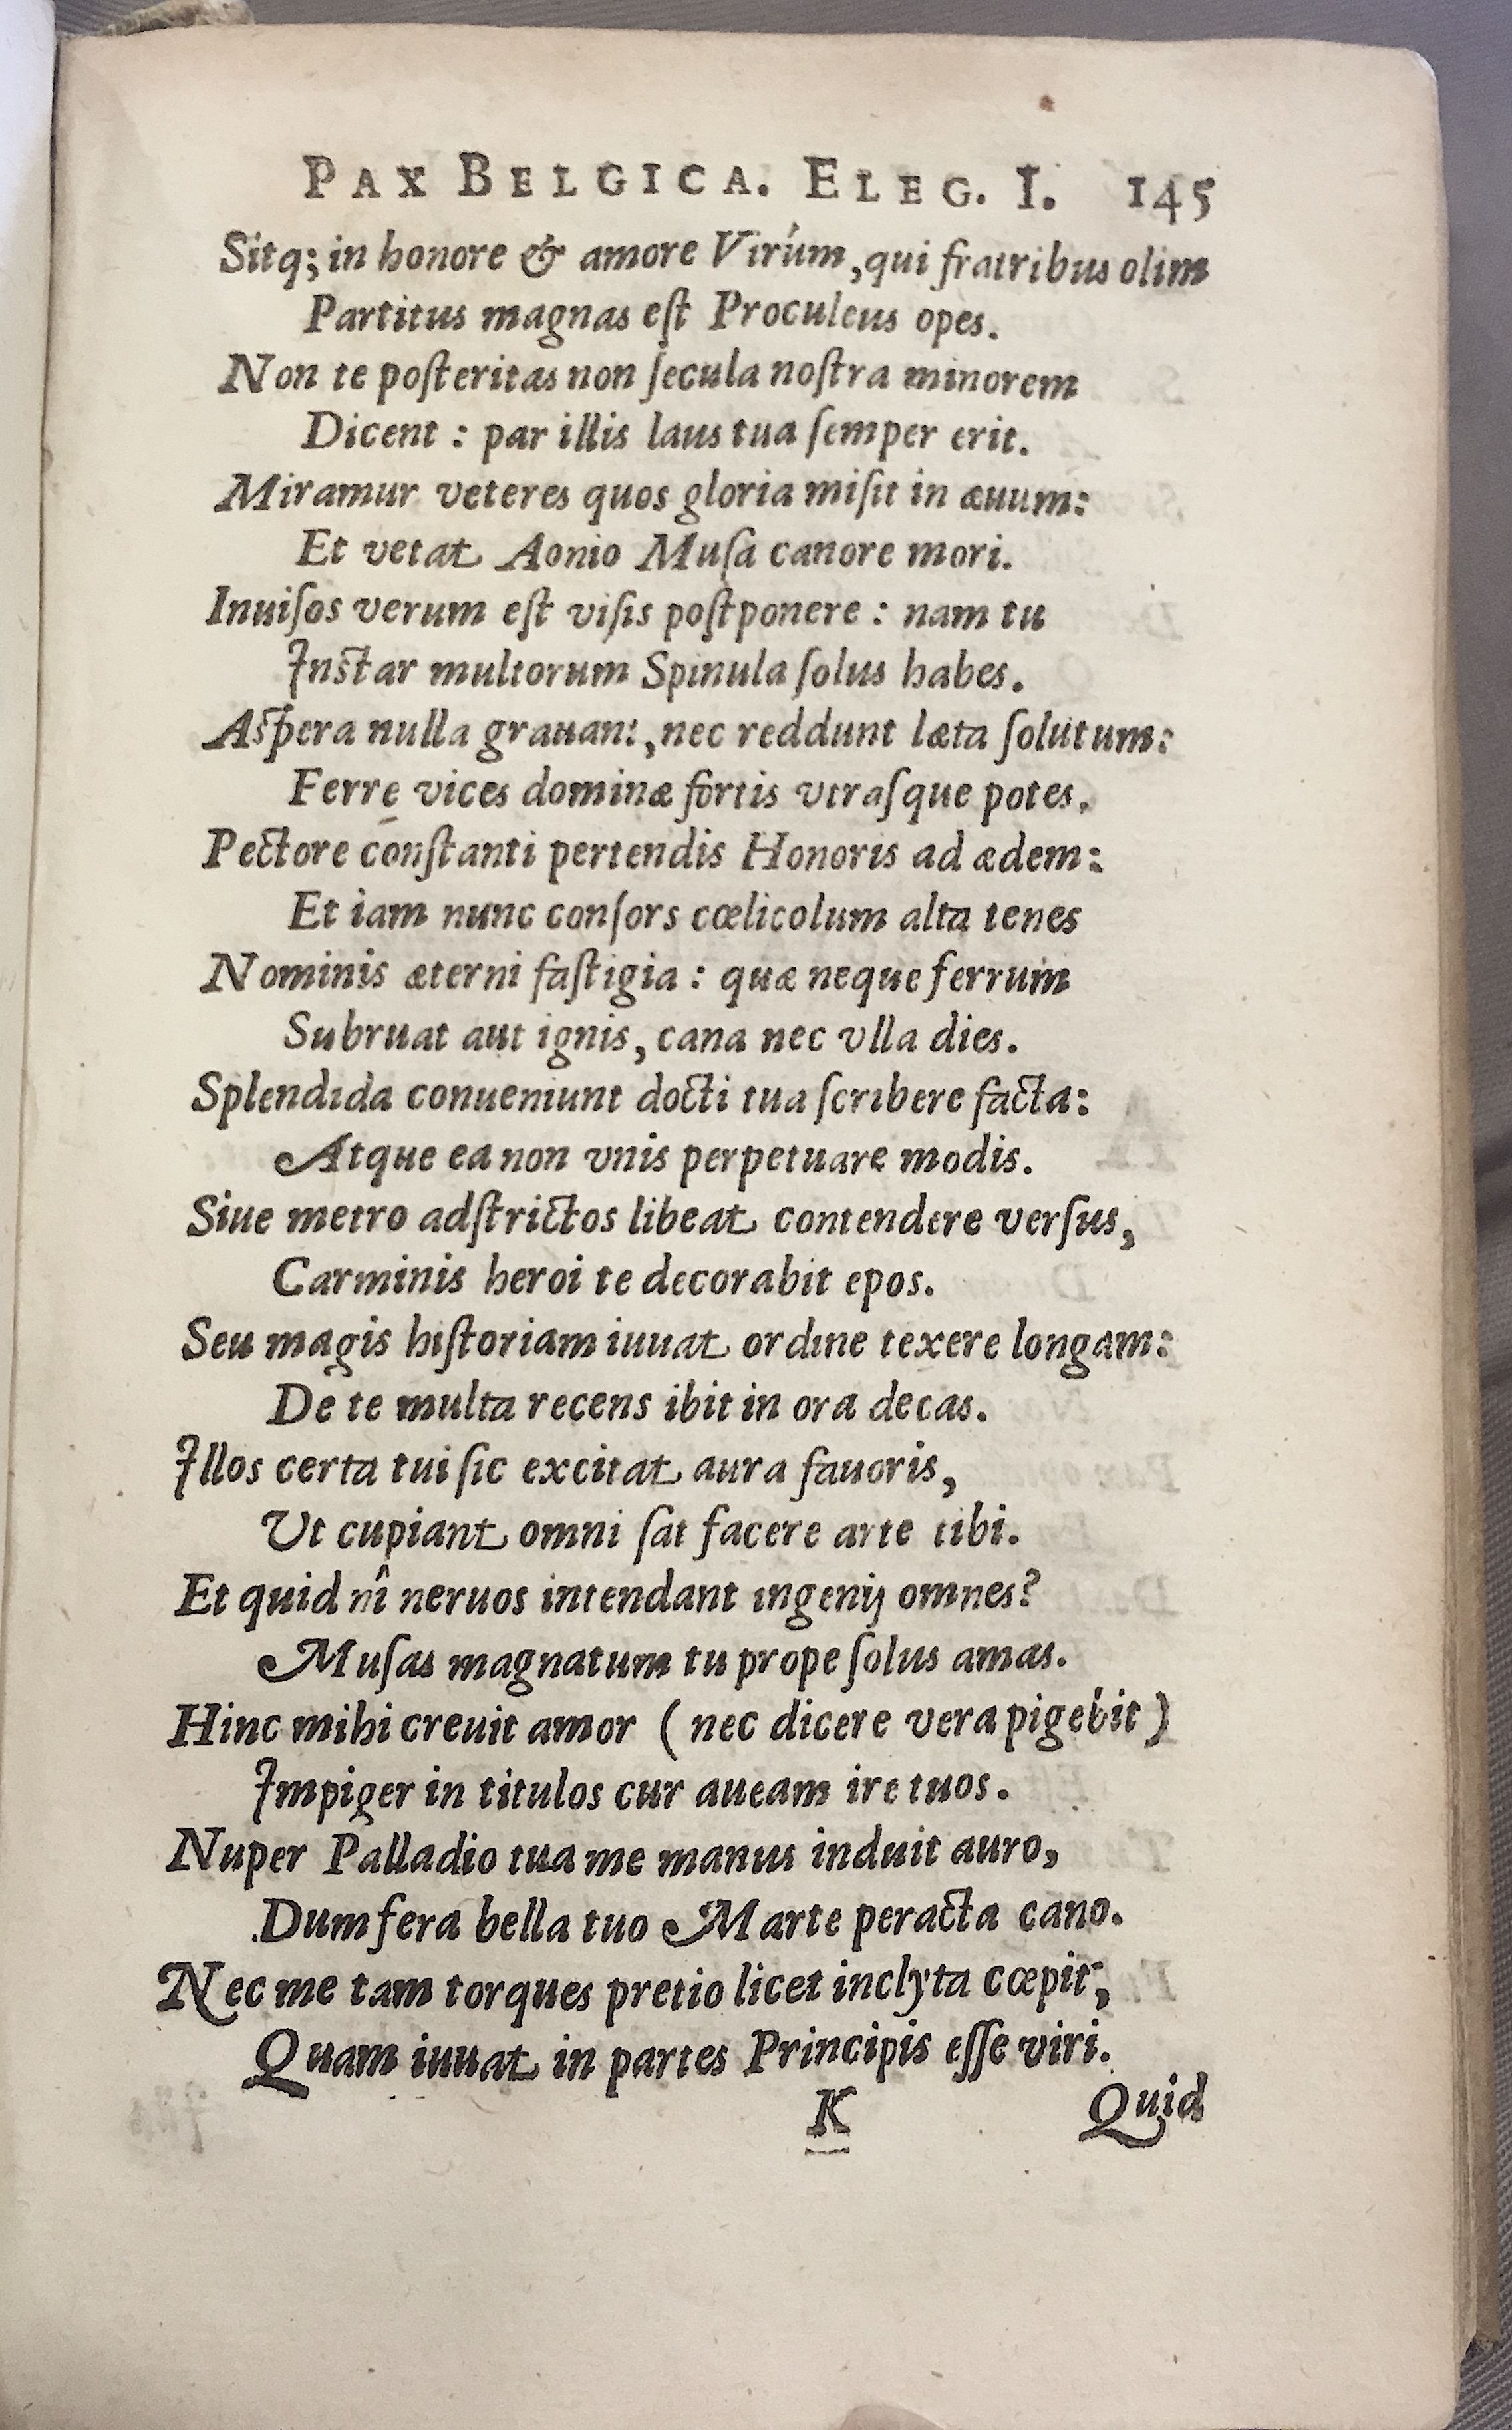 PAX BELGICA. ELEG. I. 145
Sitq; in honore & amore Virúm, qui fratribus olim
Partitus magnas eſt Proculeus opes.
Non te poſteritas non ſecula noſtra minorem
Dicent : par illis laus tua ſemper erit.
Miramur veteres quos gloria miſit in æuum:
Et vetat Aonio Muſa canore mori.
Inuiſos verum eſt viſis poſtponere : nam tu
Inſtar multorum Spinula ſolus habes.
Aſpera nulla grauant, nec reddunt læta ſolutum:
Ferre vices dominæ fortis vtraſque potes.
Pectore conſtanti pertendis Honoris ad ædem:
Et iam nunc conſors cœlicolum alta tenes
Nominis æterni faſtigia : quæ neque ferrum
Subruat aut ignis, cana nec vlla dies.
Splendida conueniunt docti tua ſcribere facta:
Atque ea non vnis perpetuare modis.
Siue metro adſtrictos libeat contendere verſus,
Carminis heroi te decorabit epos.
Seu magis hiſtoriam iuuat ordine texere longam:
De te multa recens ibit in ora decas.
Illos certa tui ſic excitat aura fauoris,
Ut cupiant omni ſat facere arte tibi.
Et quid nî neruos intendant ingenij omnes?
Muſas magnatum tu prope ſolus amas.
Hinc mihi creuit amor ( nec dicere vera pigebit )
Impiger in titulos cur aueam ire tuos.
Nuper Palladio tua me manus induit auro,
Dum fera bella tuo Marte peracta cano.
Nec me tam torques pretio licet inclyta cœpit,
Quam iuuat in partes Principis eſſe viri.
K Quid